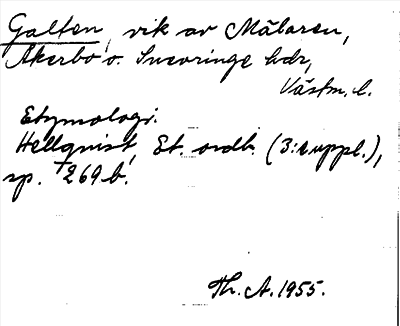 Galten, vik av Mälaren,
Åkerbo o. Snevringe hdr,
Västm. l.
Etymologi.
Hellquist, Et. ordb. (3:suppl.),
sp. 269 b.
Th. A. 1955.